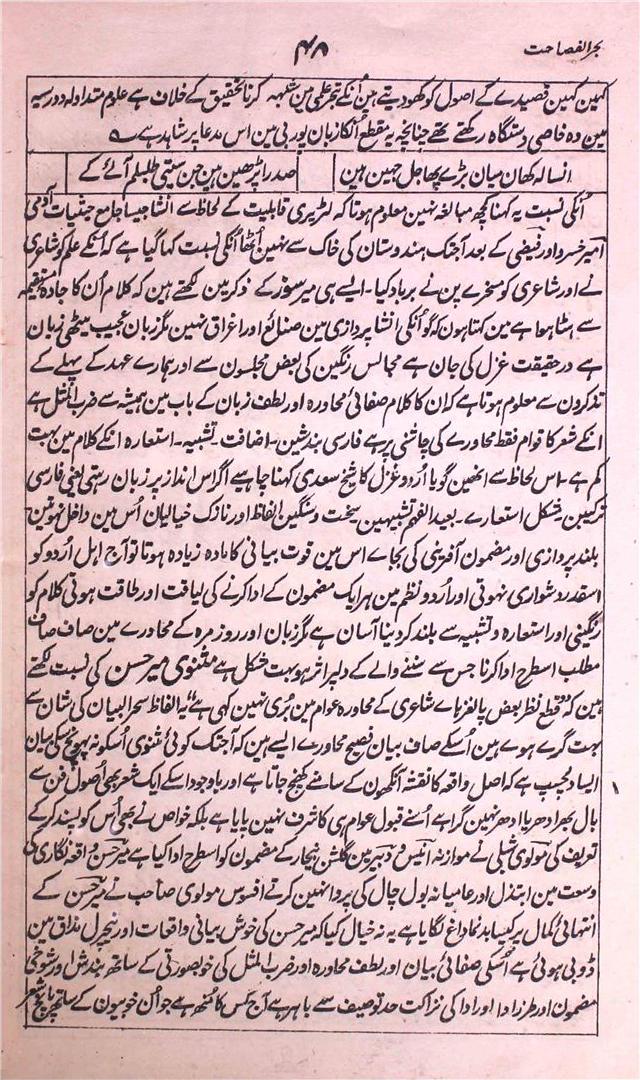 بحر الفصاحت
۴۸
کہین کہین قصیدے کے اصول کو کھو دیتے ہین اُنکے تبحر علمی مین شبہہ کرنا تحقیق کے خلاف ہے علوم متداولہ درسیہ
مین وہ خاصی دستگاہ رکھتے تھے چنانچہ یہ مقطع اُنکا زبان پوربی مین اس مدعا پر شاہد ہے ؎
انسا لہ کھان میان بڑے پھاجل جہین ہین
صدرا پڑھین ہین جن سیتی طلبلم آئے کے
اُنکی نسبت یہ کہنا کچھ مبالغہ نہین معلوم ہوتا کہ لٹریری قابلیت کے لحاظ سے انشا جیسا جامع حیثیات آدمی
امیر خسرو اور فیضی کے بعد آجتک ہندوستان کی خاک سے نہین اُٹھا اُنکی نسبت کہا گیا ہے کہ اُنکے علم کو شاعری
نے اور شاعری کو مسخرے پن نے برباد کیا ۔ ایسے ہی میر سوز کے ذکر مین لکھتے ہین کہ کلام اُن کا جادہ مستقیمہ
سے ہٹا ہوا ہے مین کہتا ہون کہ گو اُنکی انشا پردازی مین صنائع اور اغراق نہین مگر زبان عجیب میٹھی زبان
ہے درحقیقت غزل کی جان ہے مجالس رنگین کی بعض مجلسون سے اور ہمارے عہد کے پہلے کے
تذکرون سے معلوم ہوتا ہے کہ ان کا کلام صفائی محاورہ اور لطف زبان کے باب مین ہمیشہ سے ضرب المثل ہے
انکے شعر کا قوام فقط محاورے کی چاشنی پر ہے فارسی بندشین ۔ اضافت ۔ تشبیہ ۔ استعارہ انکے کلام مین بہت
کم ہے ۔ اس لحاظ سے انھین گویا اُردو غزل کا شیخ سعدی کہنا چاہیے اگر اس انداز پر زبان رہتی یعنی فارسی
ترکیبن مشکل استعارے ۔ بعید الفہم تشبیہین سخت و سنگین الفاظ اور نازک خیالیان اُس مین داخل نہوتین
بلند پردازی اور مضمون آفرینی کی بجاے اس مین قوت بیانی کا مادہ زیادہ ہوتا تو آج اہل اُردو کو
اسقدر دشواری نہوتی اور اُردو نظم مین ہر ایک مضمون کے ادا کرنے کی لیاقت اور طاقت ہوتی کلام کو
رنگینی اور استعارہ و تشبیہ سے بلند کر دینا آسان ہے مگر زبان اور روزمرہ کے محاورے مین صاف صاف
مطلب اسطرح ادا کرنا جس سے سننے والے کے دلپر اثر ہو بہت مشکل ہے مثنوی میر حسن کی نسبت لکھتے
ہین کہ قطع نظر بعض پالغزہاے شاعری کے محاورہ عوام مین بُری نہین کہی ہے یہ الفاظ سحر البیان کی شان سے
بہت گرے ہوے ہین اُسکے صاف بیان فصیح محاورے ایسے ہین کہ آجتک کوئی مثنوی اُسکو نہ پہونچ سکی بیان
ایسا دلچسپ ہے کہ اصل واقعہ کا نقشہ آنکھون کے سامنے کھنچ جاتا ہے اور باوجود اسکے ایک شعر بھی اُصول فن سے
بال بھر ادھر یا ادھر نہین گرا ہے اُسنے قبول عوام ہی کا شرف نہین پایا ہے بلکہ خواص نے بھی اُس کو پسند کرکے
تعریف کی مولوی شبلی نے موازنہ انیس و دبیر مین گلشن بیخار کے مضمون کو اسطرح ادا کیا ہے میر حسن واقعہ نگاری کی
وسعت مین ابتذال اور عامیانہ بول چال کی پروا نہین کرتے افسوس مولوی صاحب نے میر حسن کے
انتہائی کمال پر کیسا بدنما داغ لگایا ہے یہ نہ خیال کیا کہ میر حسن کی خوش بیانی واقعات اور نیچرل مذاق مین
ڈوبی ہوئی ہے اُسکی صفائی بیان اور لطف محاورہ اور ضرب المثل کی خوبصورتی کے ساتھ بندش اور شوخی
مضمون اور طرز ادا اور ادا کی نزاکت حد توصیف سے باہر ہے آج کس کا منھ ہے جو اُن خوبیون کے ساتھ پانچ شعر